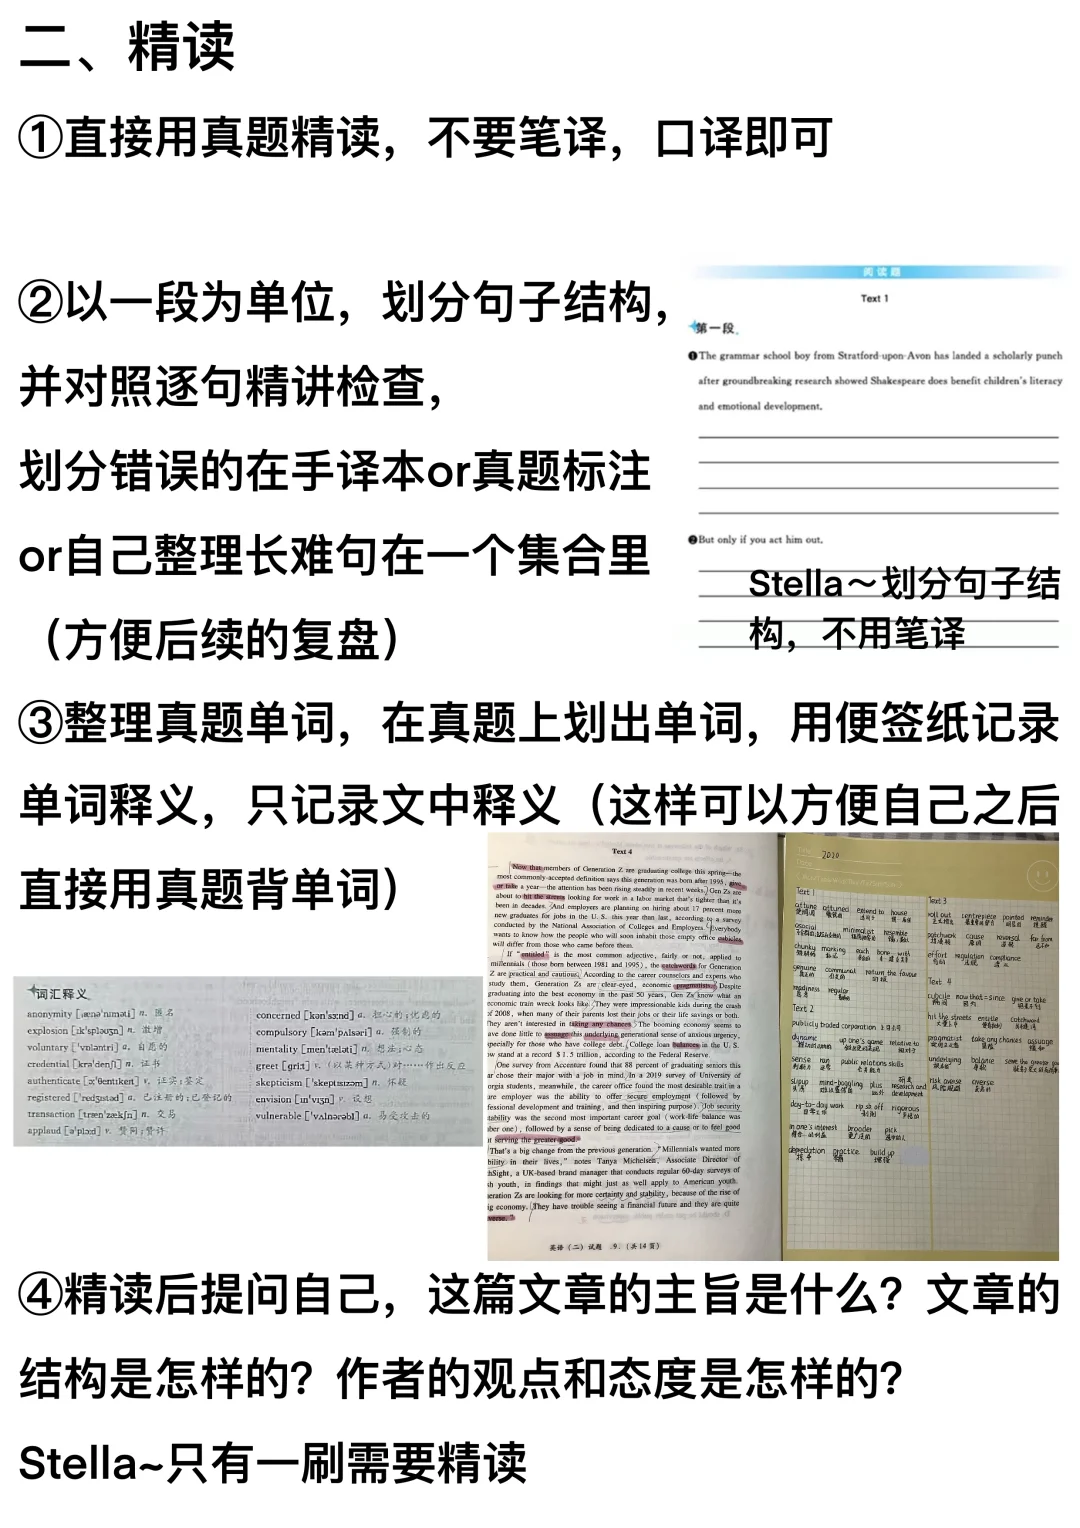 二、精读
①直接用真题精读，不要笔译，口译即可
②以一段为单位，划分句子结构，
并对照逐句精讲检查，
划分错误的在手译本or真题标注
or自己整理长难句在一个集合里
（方便后续的复盘）
阅读题
Text 1
第一段
❶The grammar school boy from Stratford-upon-Avon has landed a scholarly punch
after groundbreaking research showed Shakespeare does benefit children's literacy
and emotional development.
❷But only if you act him out.
Stella～划分句子结
构，不用笔译
③整理真题单词，在真题上划出单词，用便签纸记录
单词释义，只记录文中释义（这样可以方便自己之后
直接用真题背单词）
词汇释义
anonymity [ˌænəˈnɪməti] n. 匿名
explosion [ɪkˈspləʊʒn] n. 激增
voluntary [ˈvɒləntri] a. 自愿的
credential [krəˈdenʃl] n. 证书
authenticate [ɔːˈθentɪkeɪt] v. 证实;鉴定
registered [ˈredʒɪstəd] a. 已注册的;已登记的
transaction [trænˈzækʃn] n. 交易
applaud [əˈplɔːd] v. 赞同;赞许
concerned [kənˈsɜːnd] a. 担心的;忧虑的
compulsory [kəmˈpʌlsəri] a. 强制的
mentality [menˈtæləti] n. 想法;心态
greet [ɡriːt] v. （以某种方式）对……作出反应
skepticism [ˈskeptɪsɪzəm] n. 怀疑
envision [ɪnˈvɪʒn] v. 设想
vulnerable [ˈvʌlnərəbl] a. 易受攻击的
Text 4
Now that members of Generation Z are graduating college this spring—the
most commonly-accepted definition says this generation was born after 1995, give
or take a year—the attention has been rising steadily in recent weeks. Gen Zs are
about to hit the streets looking for work in a labor market that's tighter than it's
been in decades. And employers are planning on hiring about 17 percent more
new graduates for jobs in the U. S. this year than last, according to a survey
conducted by the National Association of Colleges and Employers. Everybody
wants to know how the people who will soon inhabit those empty office cubicles
will differ from those who came before them.
If "entitled" is the most common adjective, fairly or not, applied to
millennials (those born between 1981 and 1995), the catchwords for Generation
Z are practical and cautious. According to the career counselors and experts who
study them, Generation Zs are clear-eyed, economic pragmatists. Despite
graduating into the best economy in the past 50 years, Gen Zs know what an
economic train wreck looks like. They were impressionable kids during the crash
of 2008, when many of their parents lost their jobs or their life savings or both.
They aren't interested in taking any chances. The booming economy seems to
ave done little to assuage this underlying generational sense of anxious urgency,
specially for those who have college debt. College loan balances in the U. S.
w stand at a record $ 1.5 trillion, according to the Federal Reserve.
One survey from Accenture found that 88 percent of graduating seniors this
ar chose their major with a job in mind. In a 2019 survey of University of
orgia students, meanwhile, the career office found the most desirable trait in a
are employer was the ability to offer secure employment (followed by
fessional development and training, and then inspiring purpose). Job security
tability was the second most important career goal (work-life balance was
ber one), followed by a sense of being dedicated to a cause or to feel good
t serving the greater good.
That's a big change from the previous generation. "Millennials wanted more
bility in their lives," notes Tanya Michelsen, Associate Director of
hSight, a UK-based brand manager that conducts regular 60-day surveys of
sh youth, in findings that might just as well apply to American youth.
eration Zs are looking for more certainty and stability, because of the rise of
ig economy. They have trouble seeing a financial future and they are quite
verse."
英语（二）试题 .9.（共14页）
2020
Text 1
attune attuned extend to house
asocial minimalist resemble
chunky marking each hone with
genuine communal return the favour
readiness regular
Text 2
publicly traded corporation 上市公司
dynamic up one's game relative to
sense run public relations skills
slipup mind-boggling plus research and
development
day-to-day work rip sb off rigorous
in one's interest broader pick
depredation practice build up
Text 3
roll out centrepiece painted reminder
patchwork cause reversal far from
effort regulation compliance
Text 4
cubicle now that = since give or take
hit the streets entitle catchword
pragmatist take any chances assuage
underlying balance serve the greater good
risk averse averse
④精读后提问自己，这篇文章的主旨是什么？文章的
结构是怎样的？作者的观点和态度是怎样的？
Stella~只有一刷需要精读